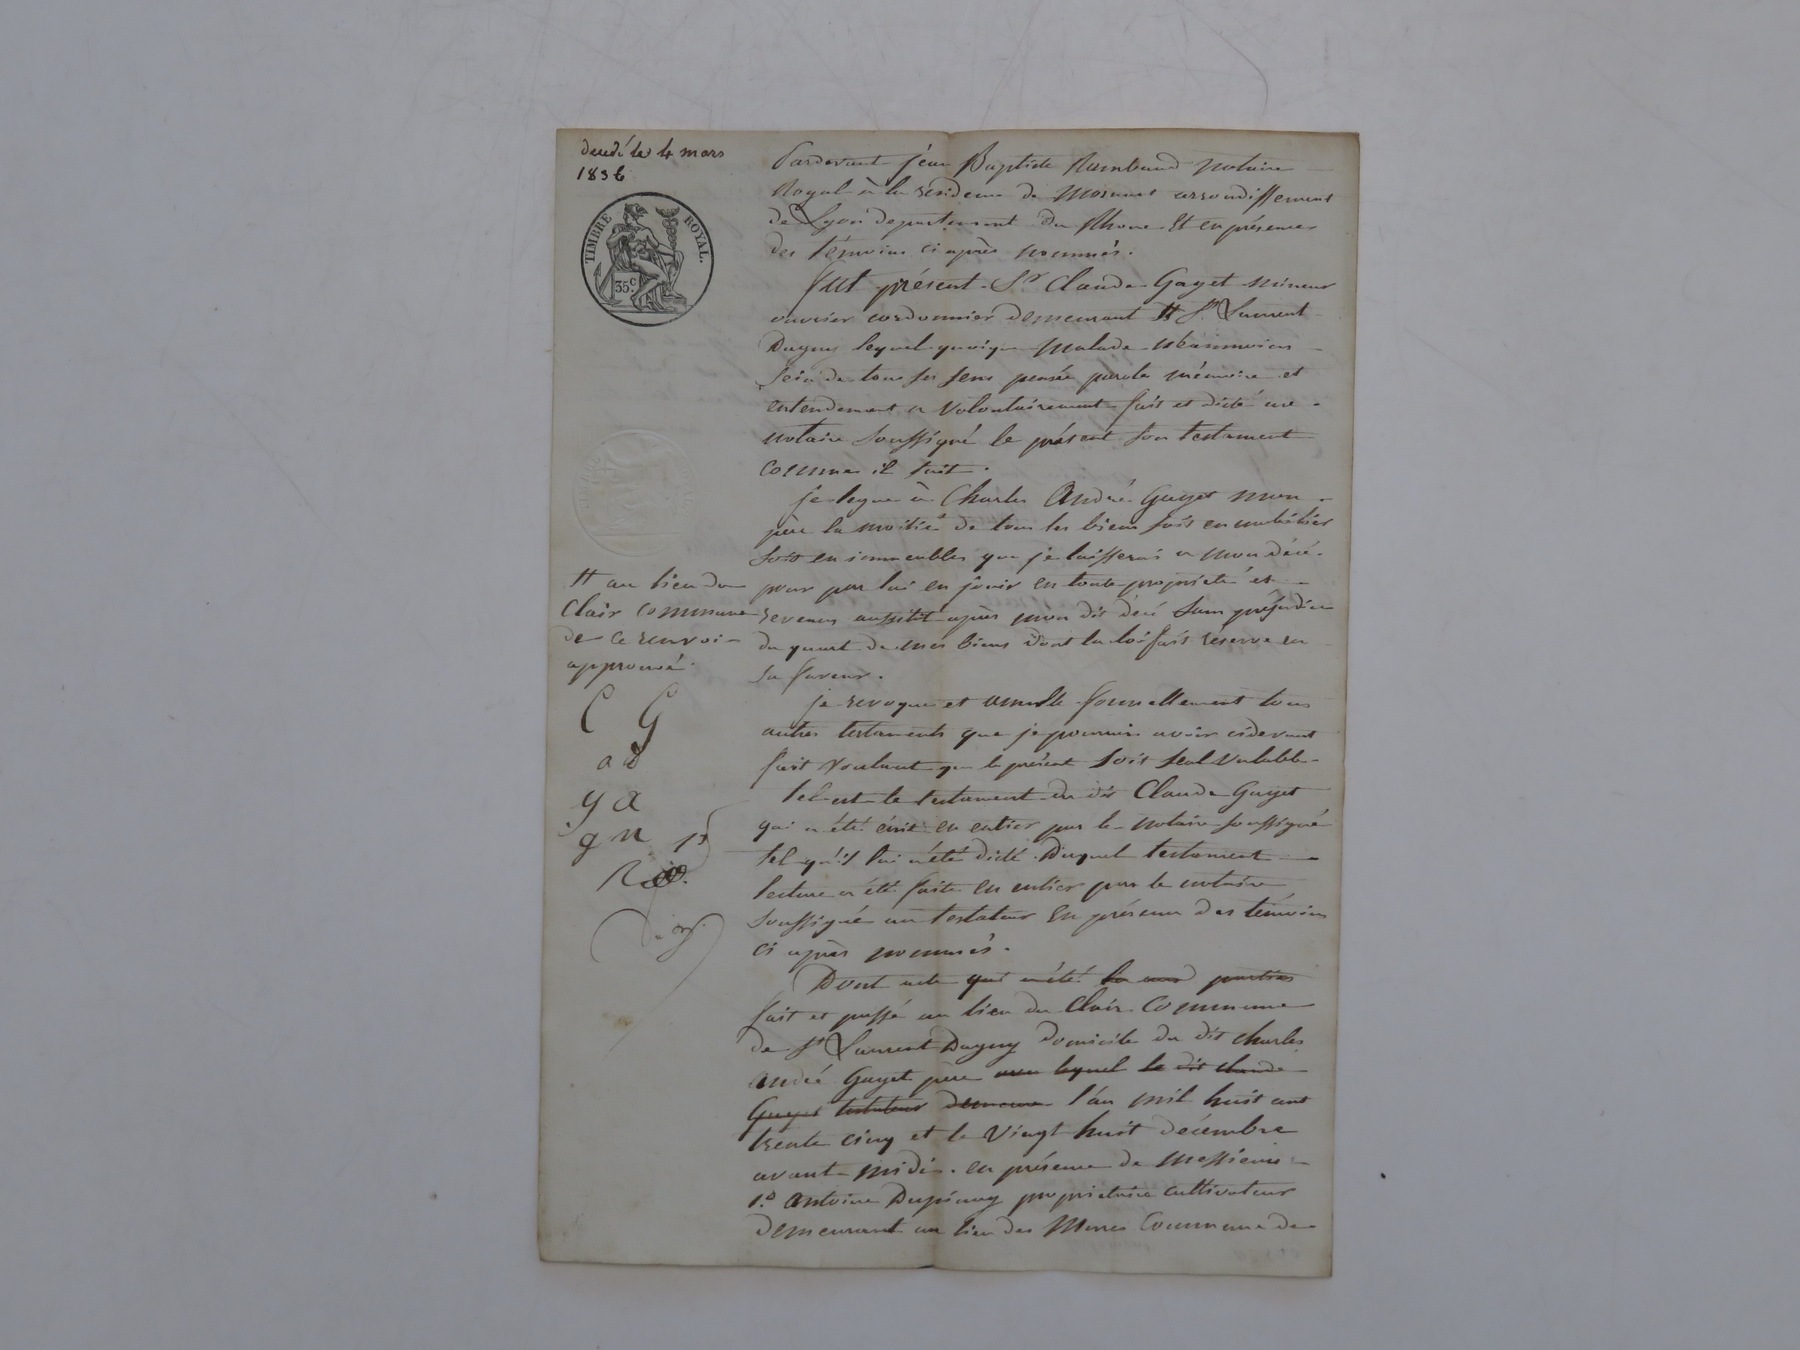 décédé le 4 mars
1836
TIMBRE ROYAL.
35c.
Pardevant jéan Baptiste Rambaud notaire
Royal à la résidence de Mornant arrondissement
de Lyon departement du Rhone Et en présence
des témoins ci après nommés.
fut présent Sr. Claude Gayet mineur
ouvrier cordonnier demeurant # St. Laurent
Dagny lequel quoique malade néanmoins
sein de tous ses sens pensée parole mémoire et
entendement a volontairement fait et dicté au
notaire soussigné le présent son testament
comme il suit.
je legue à Charles André Gayet mon
père la moitié de tous les biens soit en mobilier
soit en immeubles que je laisserai a mon décé
pour par lui en jouir en toute propriété et
revenus aussitôt après mon dit décé sans préjudice
du quart de mes biens dont la loi fait réserve en
sa faveur.
je revoque et annulle formellement tous
autres testaments que je pourrais avoir cidevant
fait voulant que le présent soit seul valable
tel est le testament du dit Claude Gayet
qui a été écrit en entier par le notaire soussigné
tel qu'il lui a été dicté. Duquel testament
lecture a été faite en entier par le notaire
soussigné au testateur en présence des témoins
ci après nommés.
Dont acte qui a été
fait et passé au lieu du Clair Commune
de St Laurent Dagny domicile du dit charles
andré Gayet père avec lequel le dit claude
Gayet testateur demeure l'an mil huit cent
trente cinq et le vingt huit décembre
avant midi. en présence de messieurs
1.o antoine Dupinay propriétaire cultivateur
demeurant au lieu des Mures Commune de
# au lieu du
Clair commune
de ce renvoi
approuvé
C G
a d
g a
g n
R